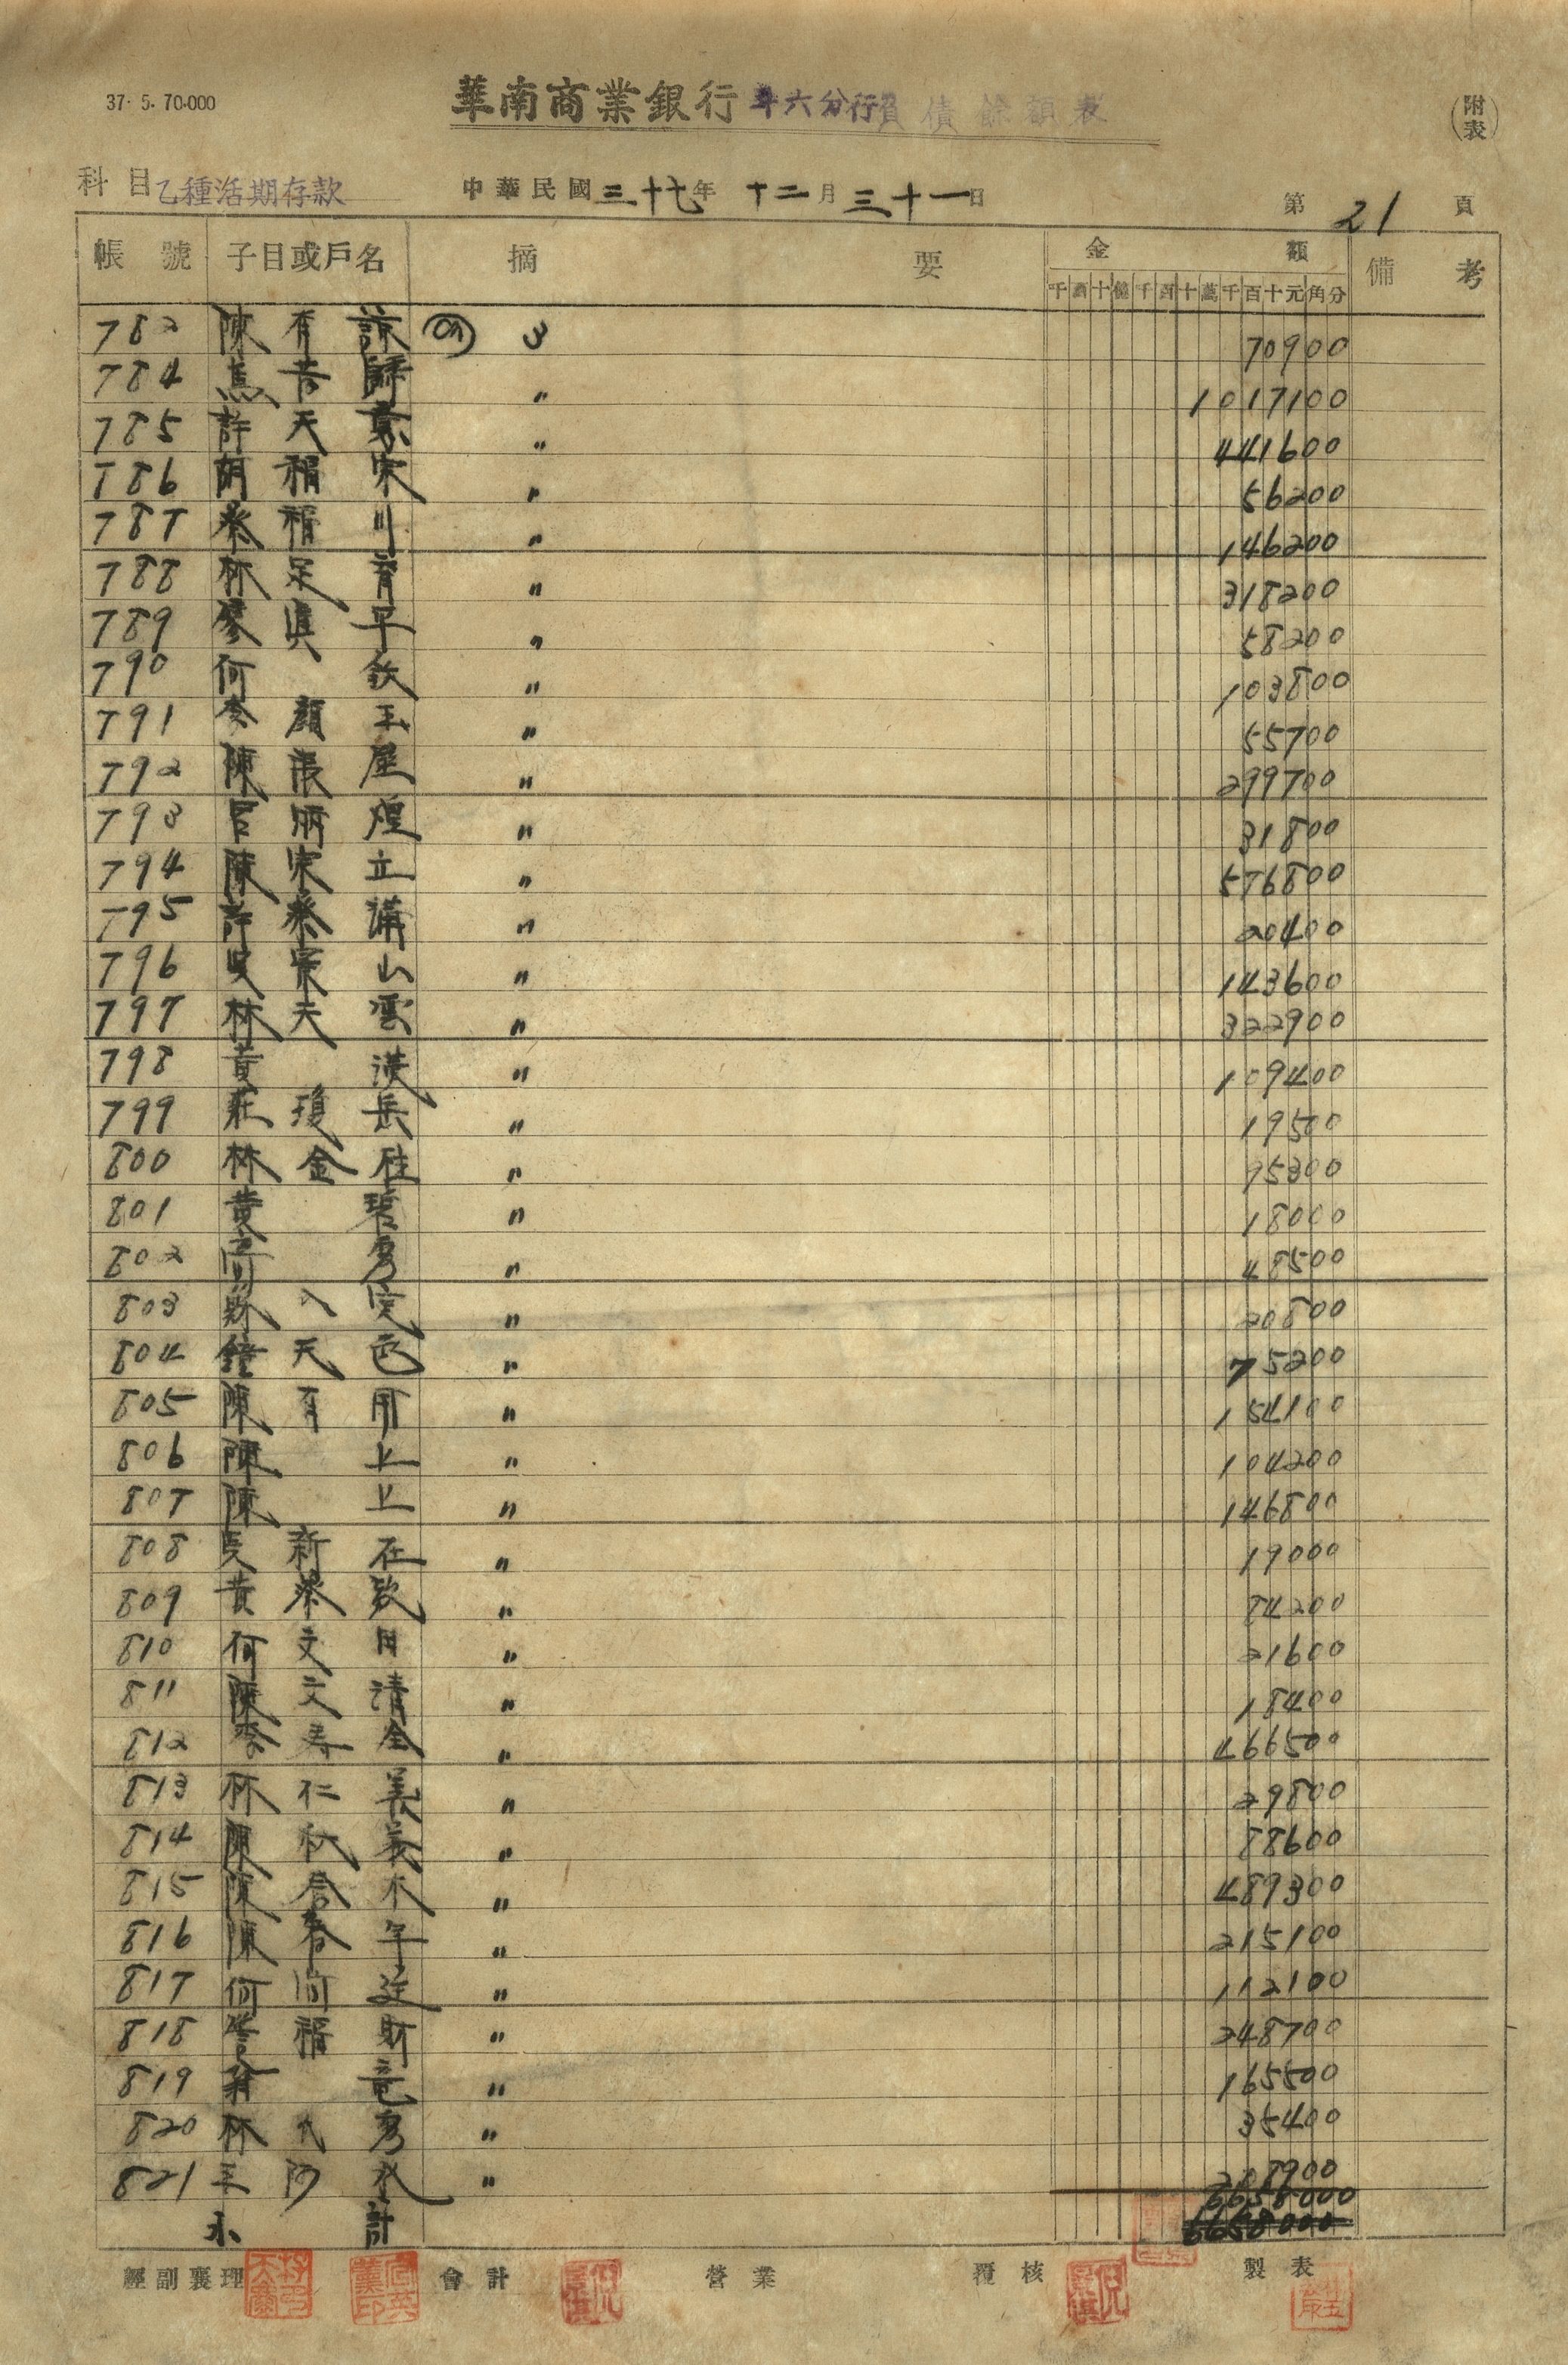 37. 5. 70.000
華南商業銀行斗六分行負債餘額表
(附表)
科目 乙種活期存款 中華民國三十七年十二月三十一日 第21頁
帳號 子目或戶名 摘要 金額 備考
千百十億千百十萬千百十元角分
782 陳有諒 3 70900
784 〃 1017100
785 許天 〃 441600
786 胡福宋 〃 56200
787 蔡福川 〃 146200
788 林 〃 318200
789 廖眞早 〃 58200
790 何欽 〃 103800
791 李顏玉 〃 55700
792 陳張屋 〃 299700
793 呂炳煌 〃 31800
794 陳宋立 〃 576800
795 許蔡溝 〃 20400
796 吳宗山 〃 143600
797 林夫雲 〃 322900
798 黃漢 〃 109400
799 莊瓊長 〃 19500
800 林金 〃 95300
801 黃碧 〃 18000
802 〃 48500
803 〃 20800
804 鐘天 〃 75200
805 陳有用 〃 154100
806 陳上 〃 104200
807 陳上 〃 146800
808 吳新在 〃 19000
809 黃蔡 〃 84200
810 何文日 〃 21600
811 陳文清 〃 18400
812 李春全 〃 466500
813 林仁美 〃 29800
814 陳秋義 〃 88600
815 陳木 〃 489300
816 陳春年 〃 215100
817 何 〃 112100
818 詹福財 〃 248700
819 〃 165500
820 林 〃 35400
821 王阿水 〃 208900
計 6658000
6658000
經副襄理 會計 營業 覆核 製表